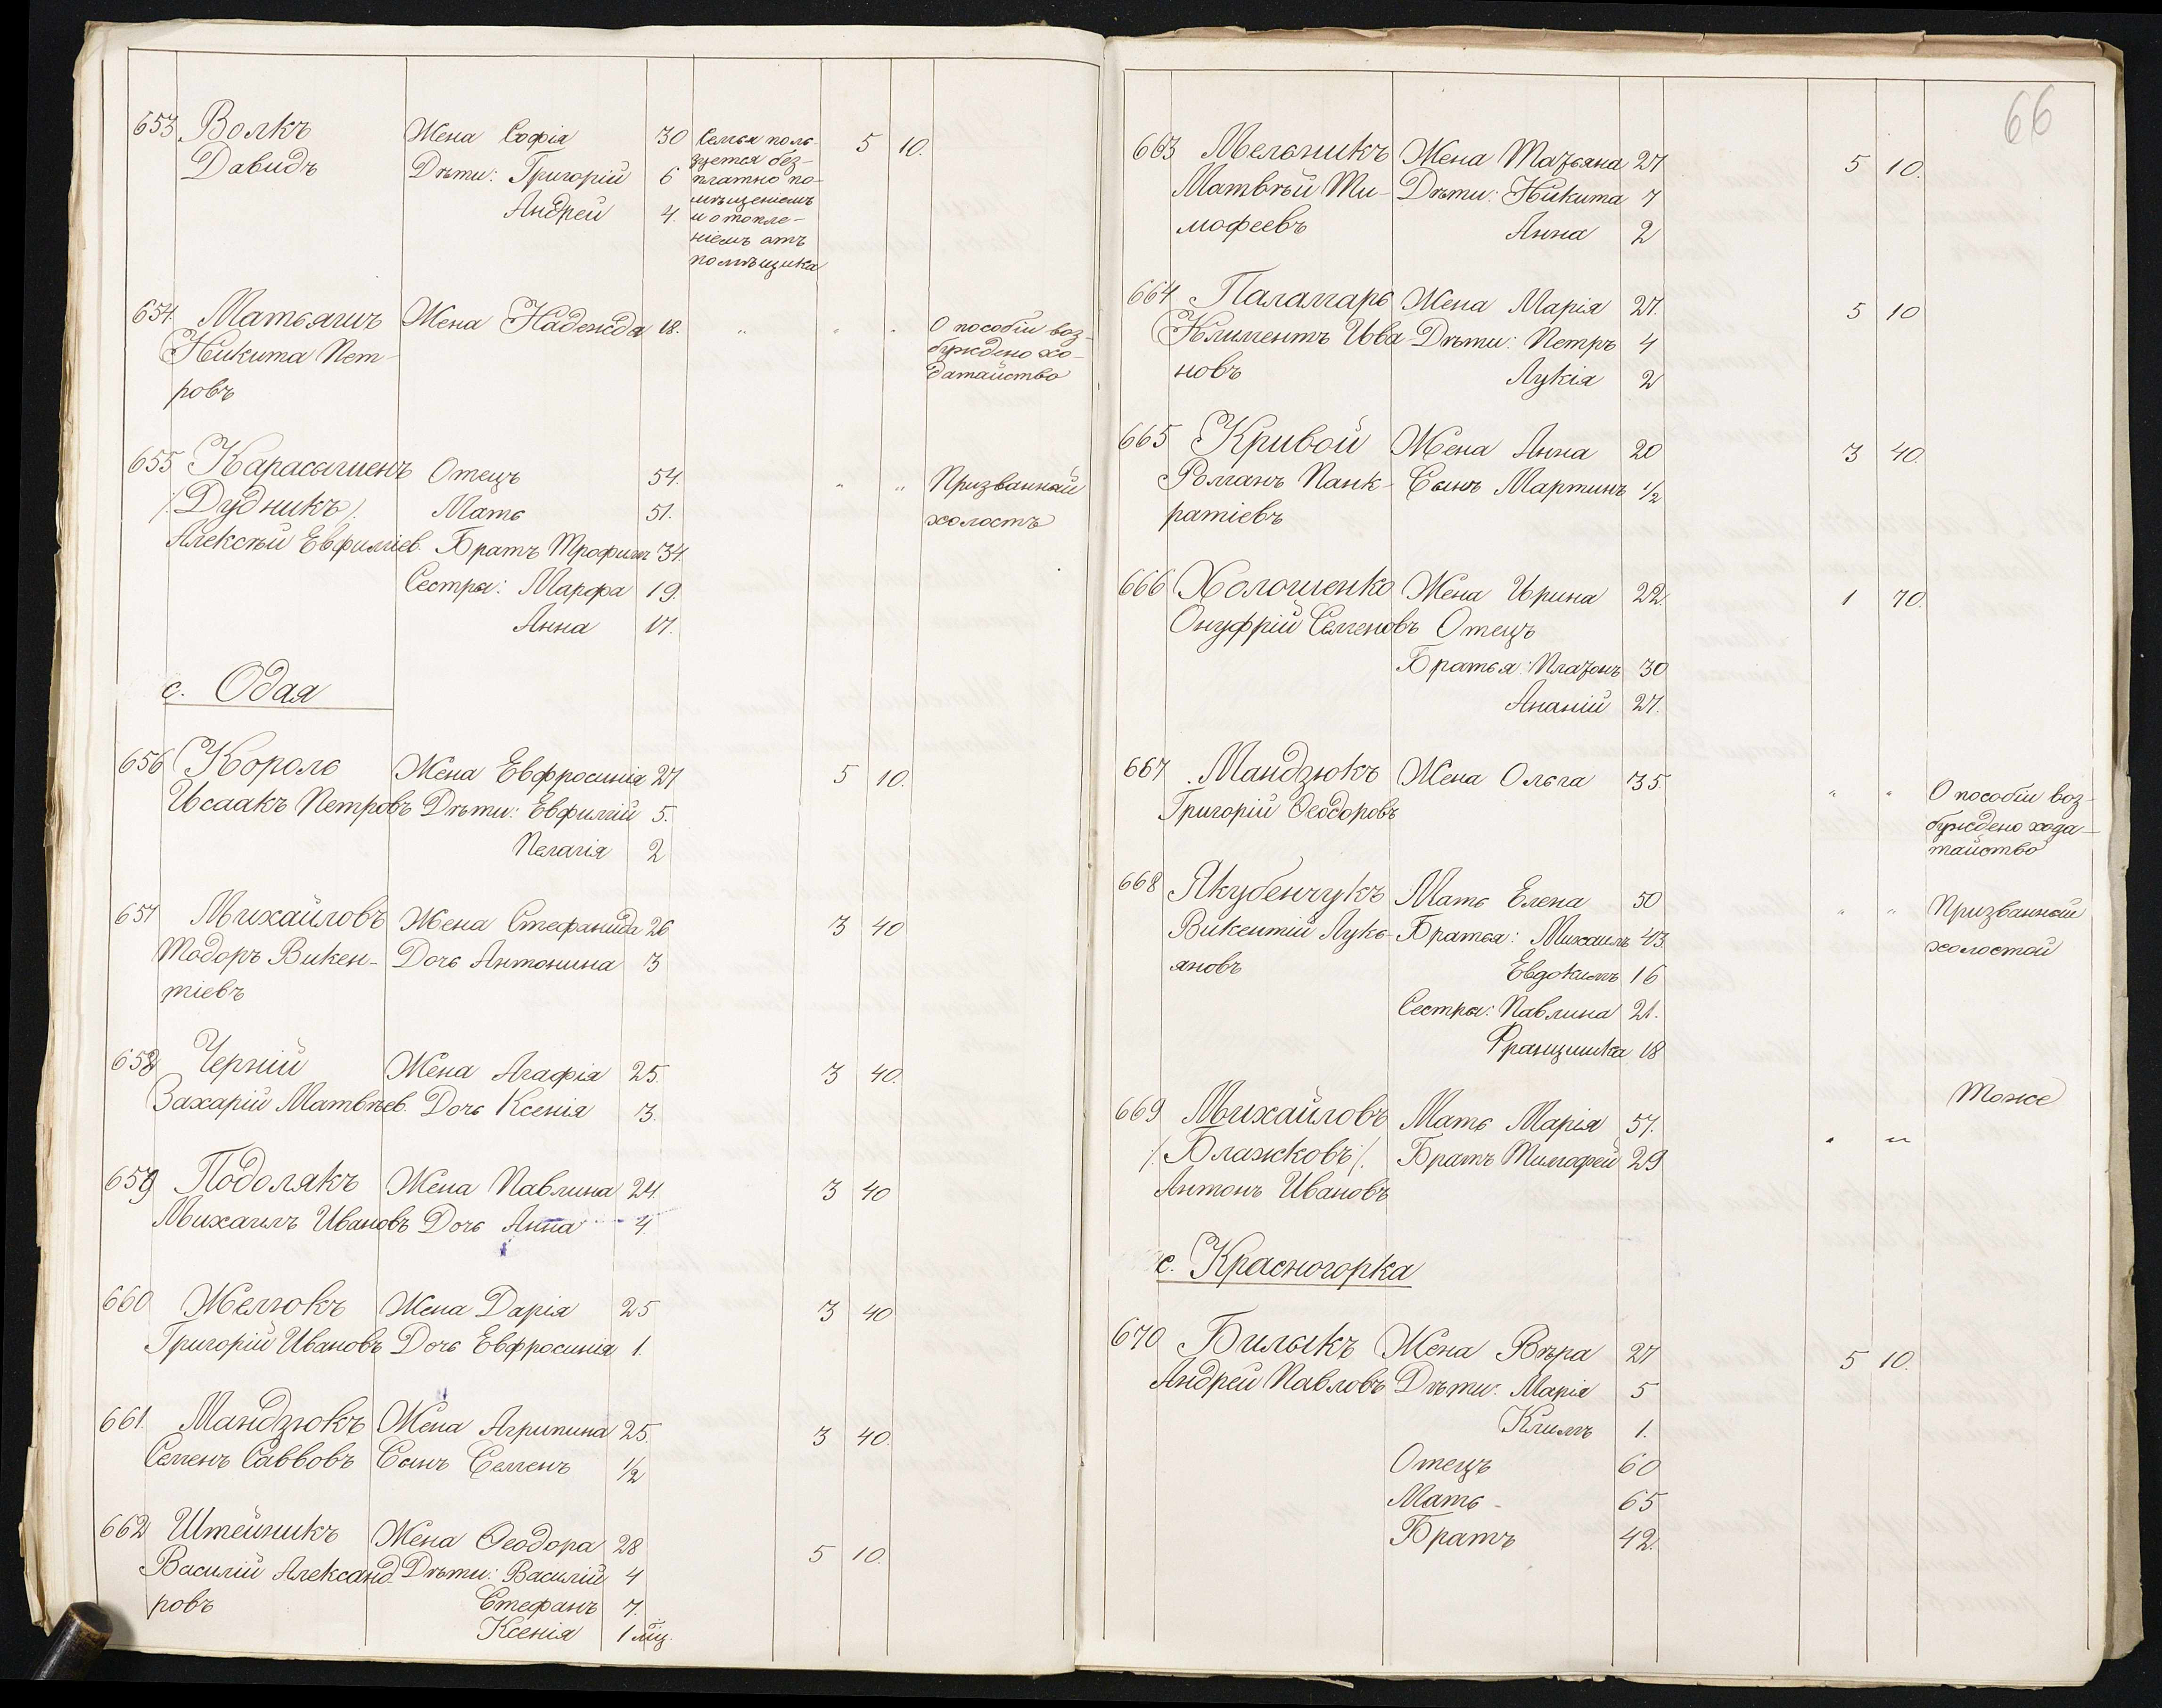 653 Волкъ Жена Софія 30 Семья поль- 5 10.
зуется без-
Давидъ Дѣти: Григорій 6 платно по-
мѣщеніемъ
Андрей 4. и отопле-
ніемъ отъ
помѣщика
654. Матьяшъ Жена Надежда 18. " " " О пособіи воз-
Никита Пет- буждено хо-
ровъ датайство
655 Карасыменъ Отецъ 54. " " Призванный
/Дудникъ/. Мать 51. холостъ
Алексѣй Евфиміев. Братъ Трофимъ 34.
Сестры: Марфа 19.
Анна 17.
с. Одая
656 Король Жена Евфросинія 27 5 10.
Исаакъ Петровъ Дѣти: Евфимій 5.
Пелагія 2
657 Михайловъ Жена Стефанида 26 3 40
Тодоръ Викен- Дочь Антонина 3
тіевъ
658 Черній Жена Агафія 25. 3 40.
Захарій Матвѣев. Дочь Ксенія 3.
659 Подолякъ Жена Павлина 24. 3 40
Михаилъ Ивановъ Дочь Анна 4.
660 Желюкъ Жена Дарія 25 3 40
Григорій Ивановъ Дочь Евфросинія 1.
661. Мандзюкъ Жена Агрипина 25. 3 40.
Семенъ Саввовъ Сынъ Семенъ 1/2
662 Штейникъ Жена Ѳеодора 28 5 10.
Василій Александ- Дѣти: Василій 4
ровъ Стефанъ 7.
Ксенія 1 мц.
66
663 Мельникъ Жена Татьяна 27 5 10.
Матвѣй Ти- Дѣти: Никита 7
мофеевъ Анна 2
664 Паламарь Жена Марія 27. 5 10
Климентъ Ива- Дѣти: Петръ 4
новъ Лукія 2
665 Кривой Жена Анна 20 3 40.
Романъ Панк- Сынъ Мартинъ 1/2
ратіевъ
666 Холошенко Жена Ирина 22. 1 70.
Онуфрій Семеновъ Отецъ
Братья: Платонъ 30
Ананій 27.
667 Мандзюкъ Жена Ольга 35 " " О пособіи воз-
Григорій Ѳеодоровъ буждено хода-
тайство
668 Якубенчукъ Мать Елена 50 " " Призванный
Викентій Лукь- Братья: Михаилъ 43 холостой
яновъ Евдокимъ 16
Сестры: Павлина 21.
Францишка 18
669 Михайловъ Мать Марія 57. " " Тоже
/.Блажковъ/. Братъ Тимофей 29
Антонъ Ивановъ
с. Красногорка
670 Билыкъ Жена Вѣра 27 5 10.
Андрей Павловъ Дѣти: Марія 5
Климъ 1.
Отецъ 60
Мать 65
Братъ 42.